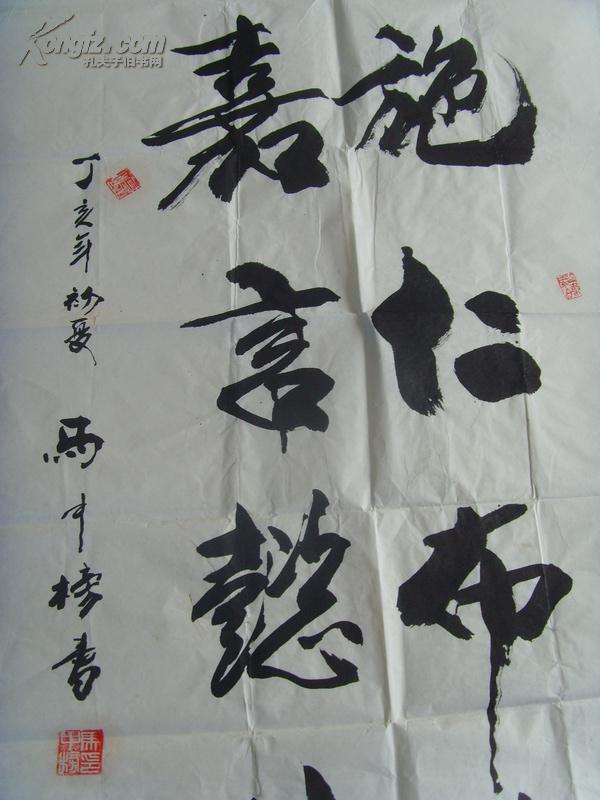 施仁布
嘉言懿
丁亥年初夏 馬中榜書
Kongfz.com
孔夫子旧书网